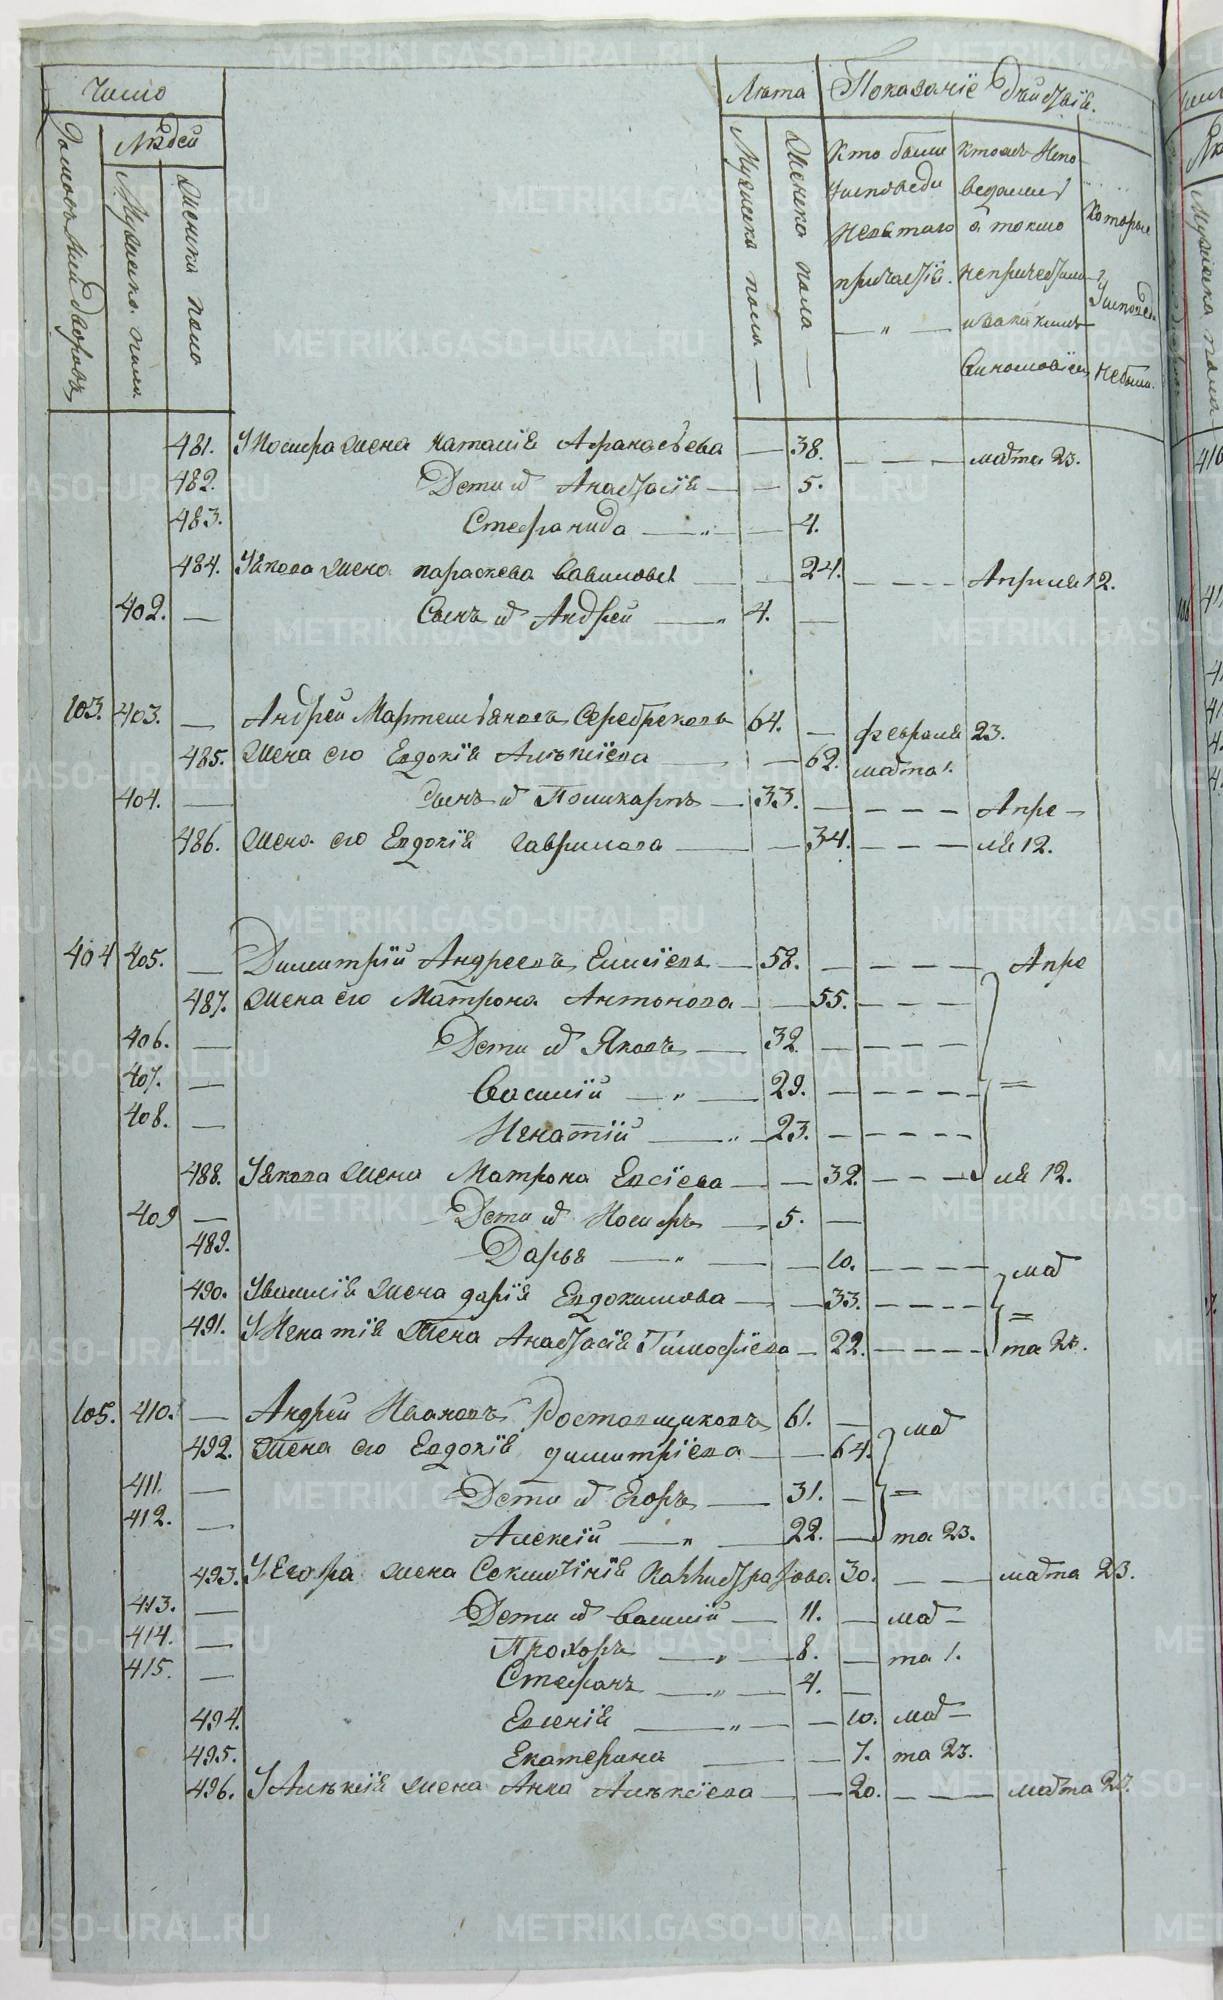 Число
Лѣта
Показанїе дѣйствїя.
Людей
Домовъ или дворовъ
Мужеска пола
Женска пола
Мужеска пола
Женска пола
Кто были
Уисповеди
Исвятаго
причастїя.
Ктожъ Испо-
ведались
а токмо
непричастилис
изакакимъ
Которые
Уисповеди
небыли.
481. УІосифа жена Наталія Афанасьева — 38. — — — марта 23.
482. Дети их Анастасїя — — 5.
483. Стефанида — „ — 4.
484. УЯкова жена параскева Вавилова — — 24. — — — Апреля 12.
402. — Сынъ их Андрей — „ 4. —
103. 403. — Андрей Мартемїяновъ Серебряковъ 64. — февраля 23.
485. Жена его Евдокїя Алѣкїева — — 62. марта 1.
404. — Сынъ их Поликарпъ — 33. — — — — Апре-
486. Жена его Евдокїя Гаврилова — — 34. — — — ля 12.
404 405. — Димитрїй Андреевъ Елисїевъ — 58. — — — — Апре
487. Жена его Матрона Антонова — — 55. — — —
406. — Дети их Яковъ — 32 — — — —
407. — Василїй — „ — 29. — — — — =
408. — Игнатїй — „ — 23. — — — —
488. УЯкова жена Матрона Евсїева — — 32. — — — ля 12.
409 — Дети их Иосифъ — 5. —
489. Дарья — „ — 10. — — — —
мар
490. УВасилїя жена дарїя Евдокимова — — 33. — — — — =
491. УИгнатїя Жена Анастасїя Тимофїева — 22. — — — — та 23.
105. 410. — Андрей Ивановъ Ростовщиковъ 61. — мар
492. Жена его Евдокїя димитрїева — — 64.
411. — Дети их Егоръ — 31. — =
412. — Алексїй — „ — 22. — та 23.
493. УЕгора жена Каллистратова 30. — — марта 23.
413. — Дети их Василїй — 11. — мар-
414. — Прохоръ — „ — 8. — та 1.
415. — Стефанъ — „ — 4. —
494. Евгенїя — „ — — 10. мар-
495. Екатерина — — 7. та 23.
496. УАлѣкїя жена Анна Алѣкїева — — 20. — — — марта 23.
METRIKI.GASO-URAL.RU